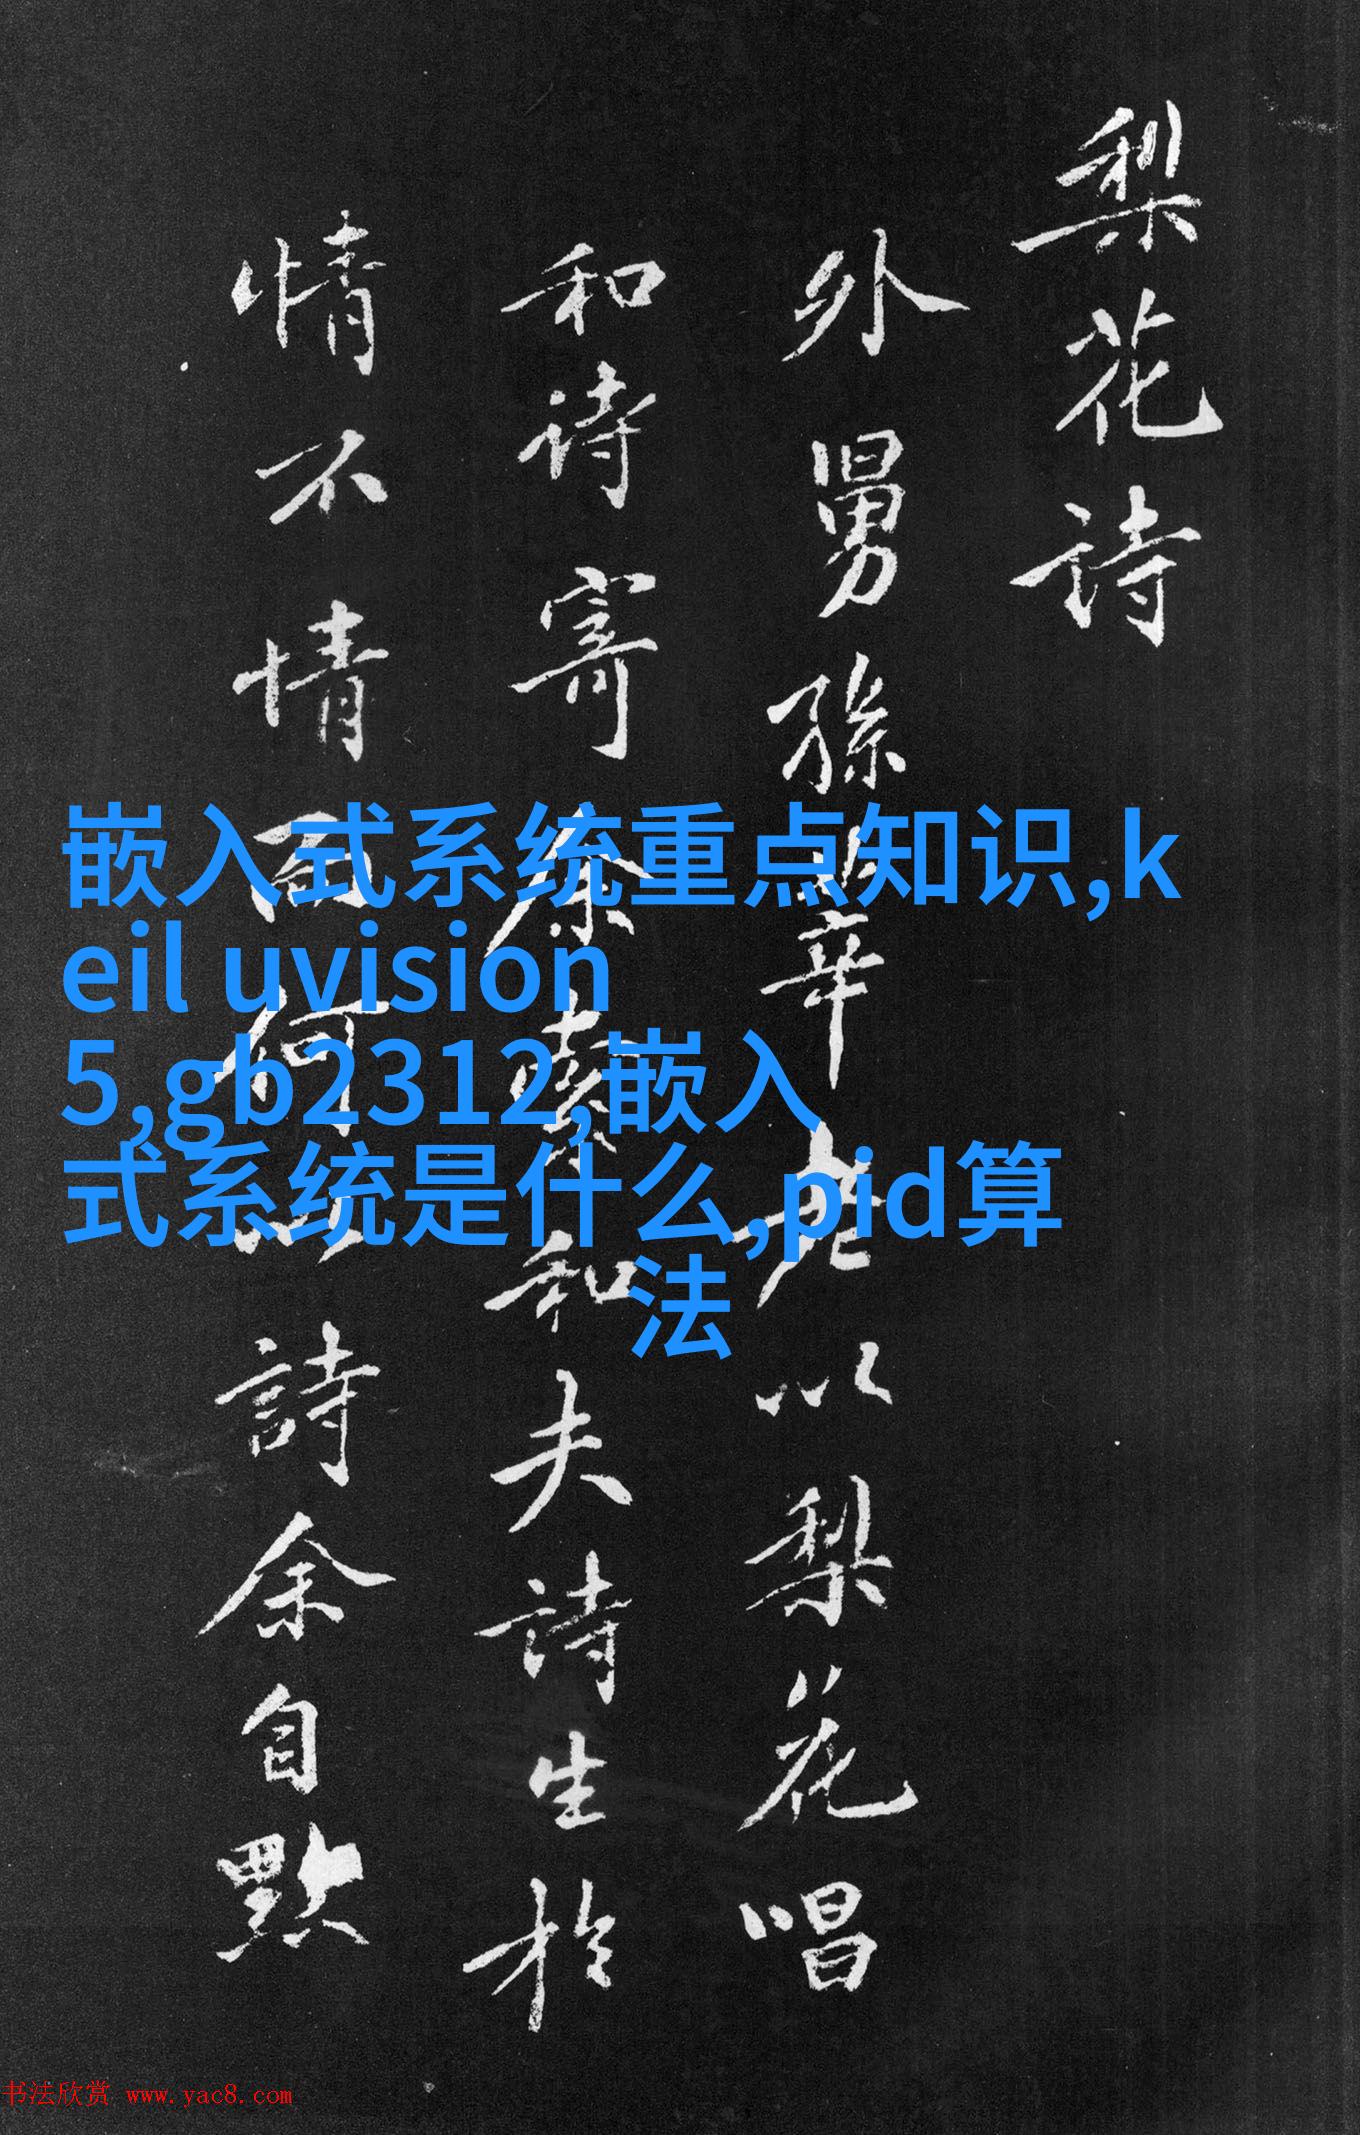 梨花诗
外舅孫莘老以梨花唱
和诗寄余索和夫詩生於
情不情而何以詩余自默
嵌入式系统重点知识,k
eil uvision
5,gb2312,嵌入
式系统是什么,pid算
法
书法欣赏 www.yac8.com